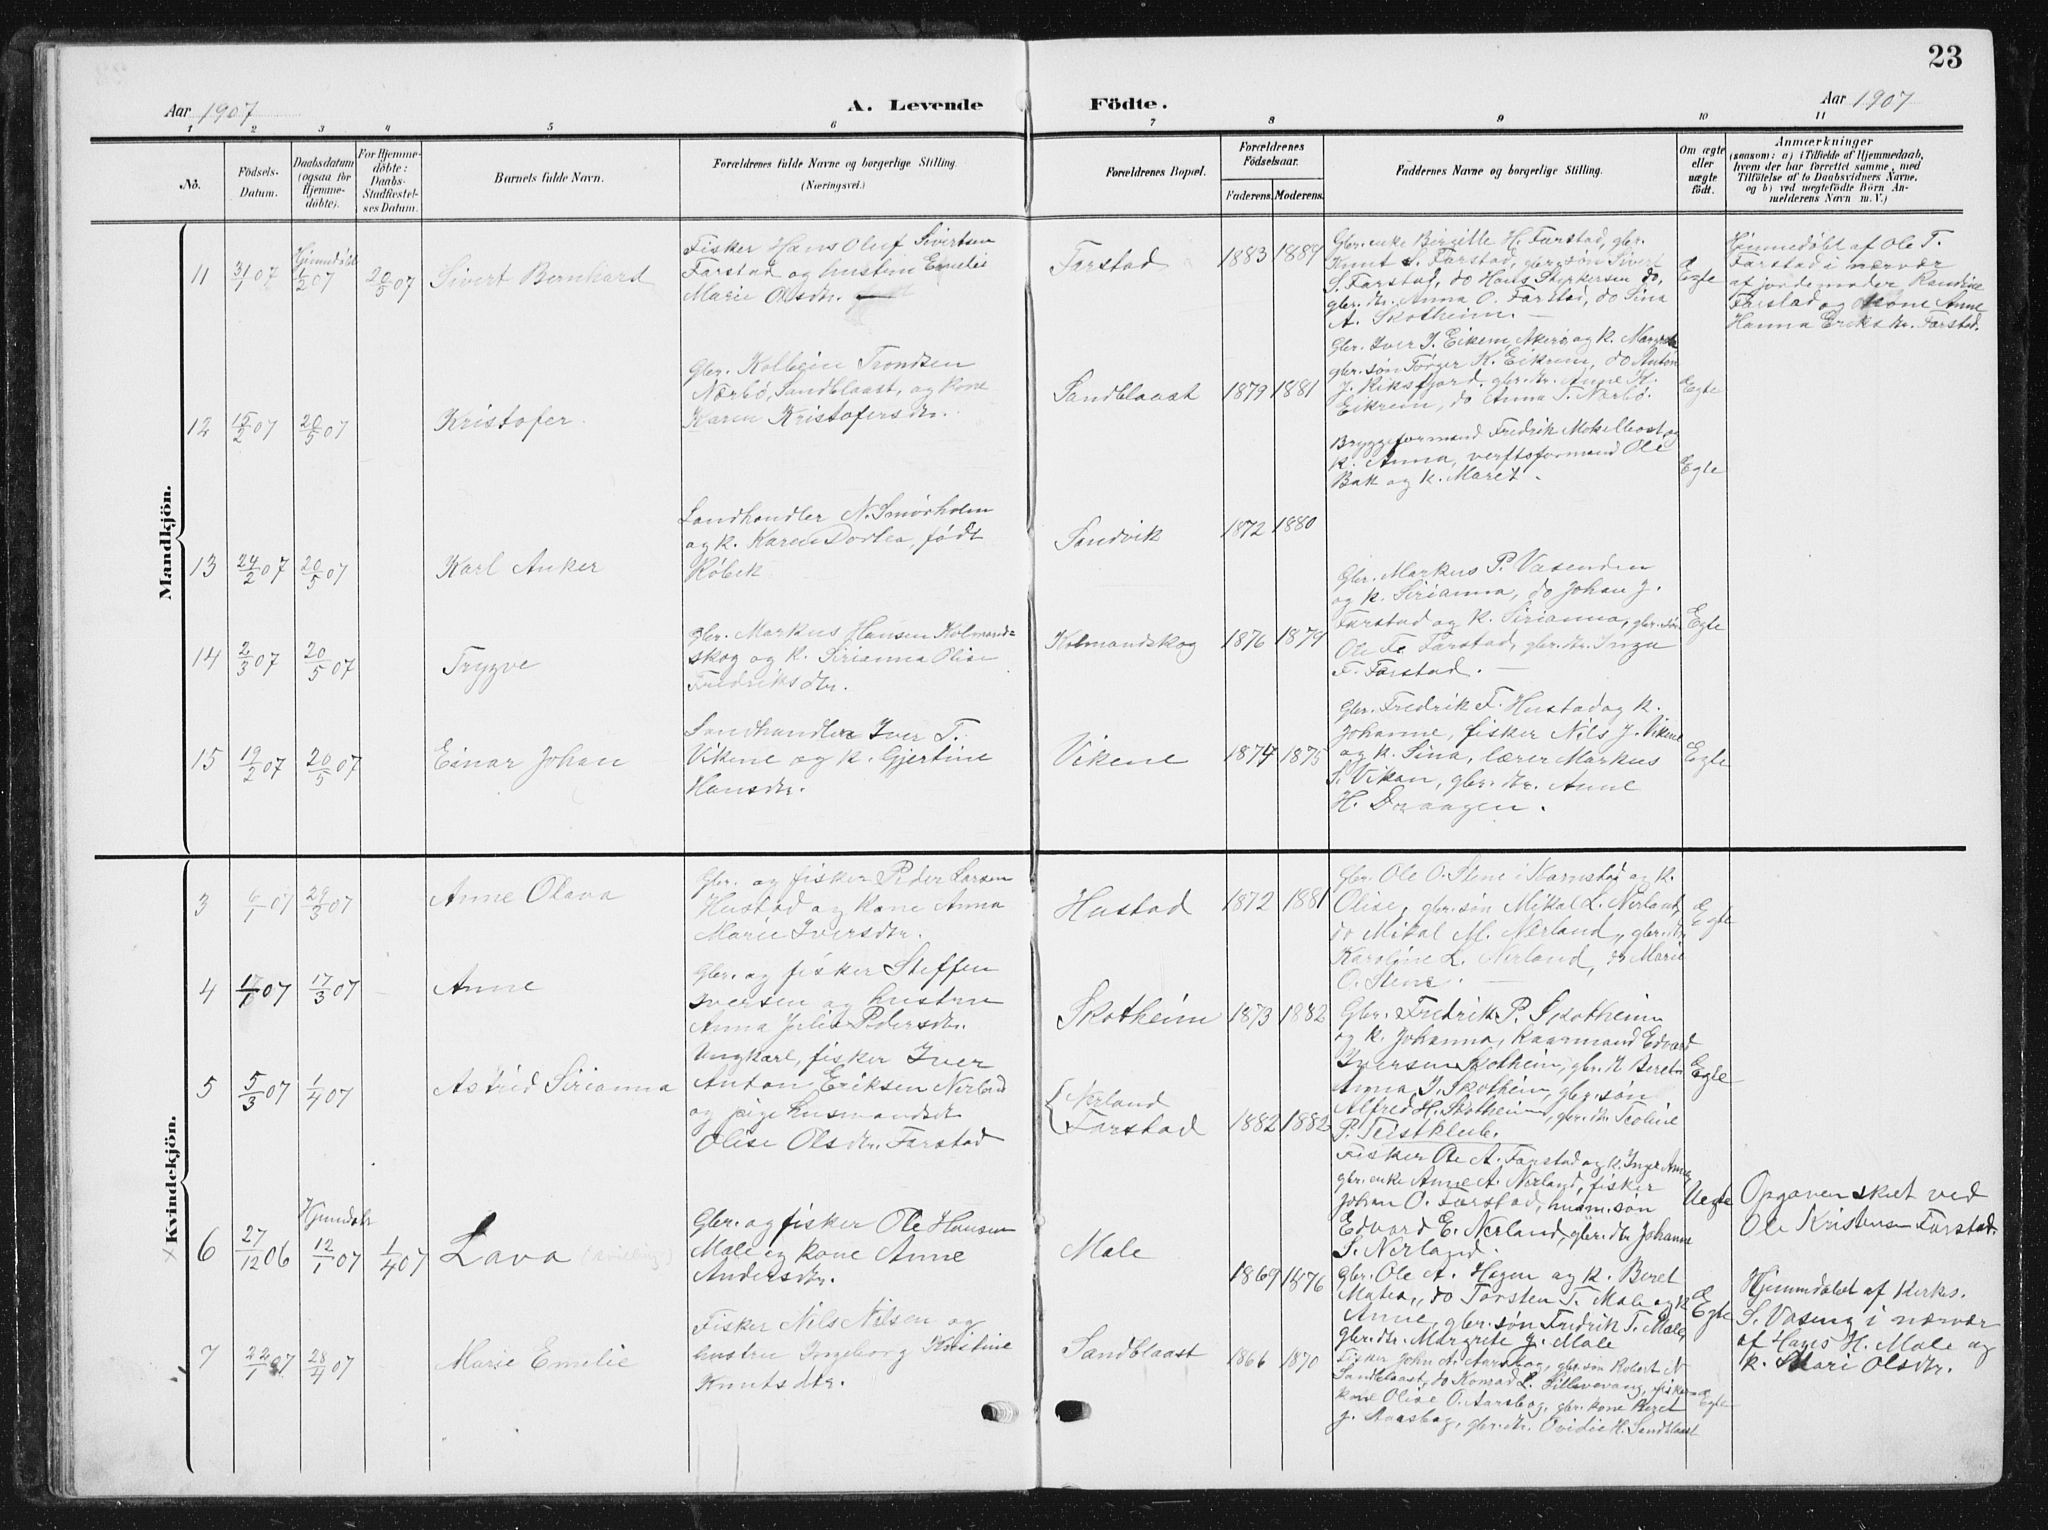 23
Aar 1907
A. Levende Födte.
Aar 1907
1 2 3 4 5 6 7 8 9 10 11
No.
Födsels-Datum.
Daabsdatum (ogsaa for Hjemme-döbte).
For Hjemme-döbte: Daabs-Stadfæstel-ses Datum.
Barnets fulde Navn.
Forældrenes fulde Navne og borgerlige Stilling.
(Næringsvei.)
Forældrenes Bopæl.
Forældrenes Födselsaar.
Faderens. Moderens.
Faddernes Navne og borgerlige Stilling.
Om ægte eller uægte födt.
Anmærkninger
(saasom: a) i Tilfælde af Hjemmedaab,
hvem der har forrettet samme, med
Tilföielse af to Daabsvidners Navne,
og b) ved uægtefödte Börn An-
melderens Navn m. V.)
Mandkjön.
11 31/1 07 Hjemmedøbt 1/2 07 20/5 07 Sivert Bernhard
Fisker Hans Oluf Sivertsen
Farstad og hustru Emelie
Marie Olsdtr.
Farstad 1883 1889
Gbr. enke Birgitte H. Farstad, gbr.
Knut S. Farstad, gbr. søn Sivert
S. Farstad, do Hans Styrkersen do,
gbr. dtr. Anna O. Farstad, do Sina
A. Skotheim.
Ægte
Hjemmedøbt af Ole T.
Farstad i nærvær
af jordemoder Randine
Farstad og kone Anne
Hanna Eriksdtr. Farstad.
12 15/2 07 20/5 07 Kristofer
Gbr. Kolbein Trondsen
Nærbø, Sandblaast, og kone
Karen Kristofersdtr.
Sandblaast 1879 1881
Gbr. Iver I. Eikem, Akerø og k. Margrete
gbr. søn Torger K. Eikrem, do Anton
J. Riksfjord, gbr. dtr. Anne K.
Eikrem, do Anna T. Nærbø.
Ægte
13 24/2 07 20/5 07 Karl Anker
Landhandler N. Smørholm
og k. Karen Dorthea, født
Røbek
Sandvik 1872 1880
Bryggeformand Fredrik Mekelbost og
k. Anna, verftsformand Ole
Bak og k. Maret.
Ægte
14 2/3 07 20/5 07 Trygve
Gbr. Markus Hansen Kolmand-
skog og k. Sirianna Olise
Fredriksdtr.
Kolmandskog 1876 1879
Gbr. Markus P. Vasenden
og k. Sirianna, do Johan J.
Farstad og k. Sirianna, gbr. søn
Ole F. Farstad, gbr. dtr. Inga
F. Farstad.
Ægte
15 19/2 07 20/5 07 Einar Johan
Landhandler Iver T.
Vikene og k. Gjertine
Hansdtr.
Vikene 1874 1875
Gbr. Fredrik F. Hustad og k.
Johanne, fisker Nils J. Vikene
og k. Sina, lærer Markus
S. Vikan, gbr. dtr. Anne
H. Draagen.
Ægte
Kvindekjön.
3 6/1 07 29/3 07 Anne Olava
Gbr. og fisker Peder Larsen
Hustad og kone Anna
Marie Iversdtr.
Hustad 1872 1881
Gbr. Ole O. Stene i Narnstad og k.
Olise, gbr. søn Mikal L. Nerland,
do Mikal M. Nerland, gbr. dtr.
Karoline L. Nerland, do Marie
O. Stene.
Ægte
4 17/1 07 17/3 07 Anne
Gbr. og fisker Steffen
Iversen og hustru
Anna Julia Pedersdtr.
Skotheim 1873 1882
Gbr. Fredrik P. Skotheim
og k. Johanna, kaarmand Edvard
Iversen Skotheim, gbr. k. Beret
Anna I. Skotheim, gbr. søn
Alfred H. Skotheim, gbr. dtr. Teoline
P. Teistklub.
Ægte
5 5/3 07 1/4 07 Astrid Sirianna
Ungkarl, fisker Iver
Anton Eriksen Nerland
og pige husmandsdtr
Olise Olsdtr. Farstad
Nerland
Farstad 1882 1882
Fisker Ole A. Farstad og k. Inger Anna,
gbr. enke Anne A. Nerland, fisker
Johan O. Farstad, husm. søn
Edvard E. Nerland, gbr. dtr Johanne
S. Nerland.
Uegte
Opgaven skiet ved
Ole Kristensen Farstad.
6 27/12 06 Hjemdøbt 12/1 07 1/4 07 Lava (tvilling)
Gbr. og fisker Ole Hansen
Male og kone Anne
Andersdtr.
Male 1869 1876
Gbr. Ole A. Hagen og k. Beret
Matea, do Torsten T. Male og k
Anne, gbr. søn Fredrik T. Male,
gbr. dtr. Margrete J. Male
Ægte
Hjemmdøbt af Kirks.
S. Vaseng i nærvær
af Hans H. Male og
k. Mari Olsdtr.
7 22/1 07 28/4 07 Marie Emelie
Fisker Nils Nilsen og
hustru Ingeborg Kristine
Knutsdtr.
Sandblaast 1866 1870
Fisker John A. Aarsbog, gbr. søn Robert N
Sandblaast, do Konrad L. Lillevevang, fisker-
kone Olise O. Aarsbog, gbr. kone Beret
J. Aarsbog, gbr. dtr. Ovidie H. Sandblaast
Ægte